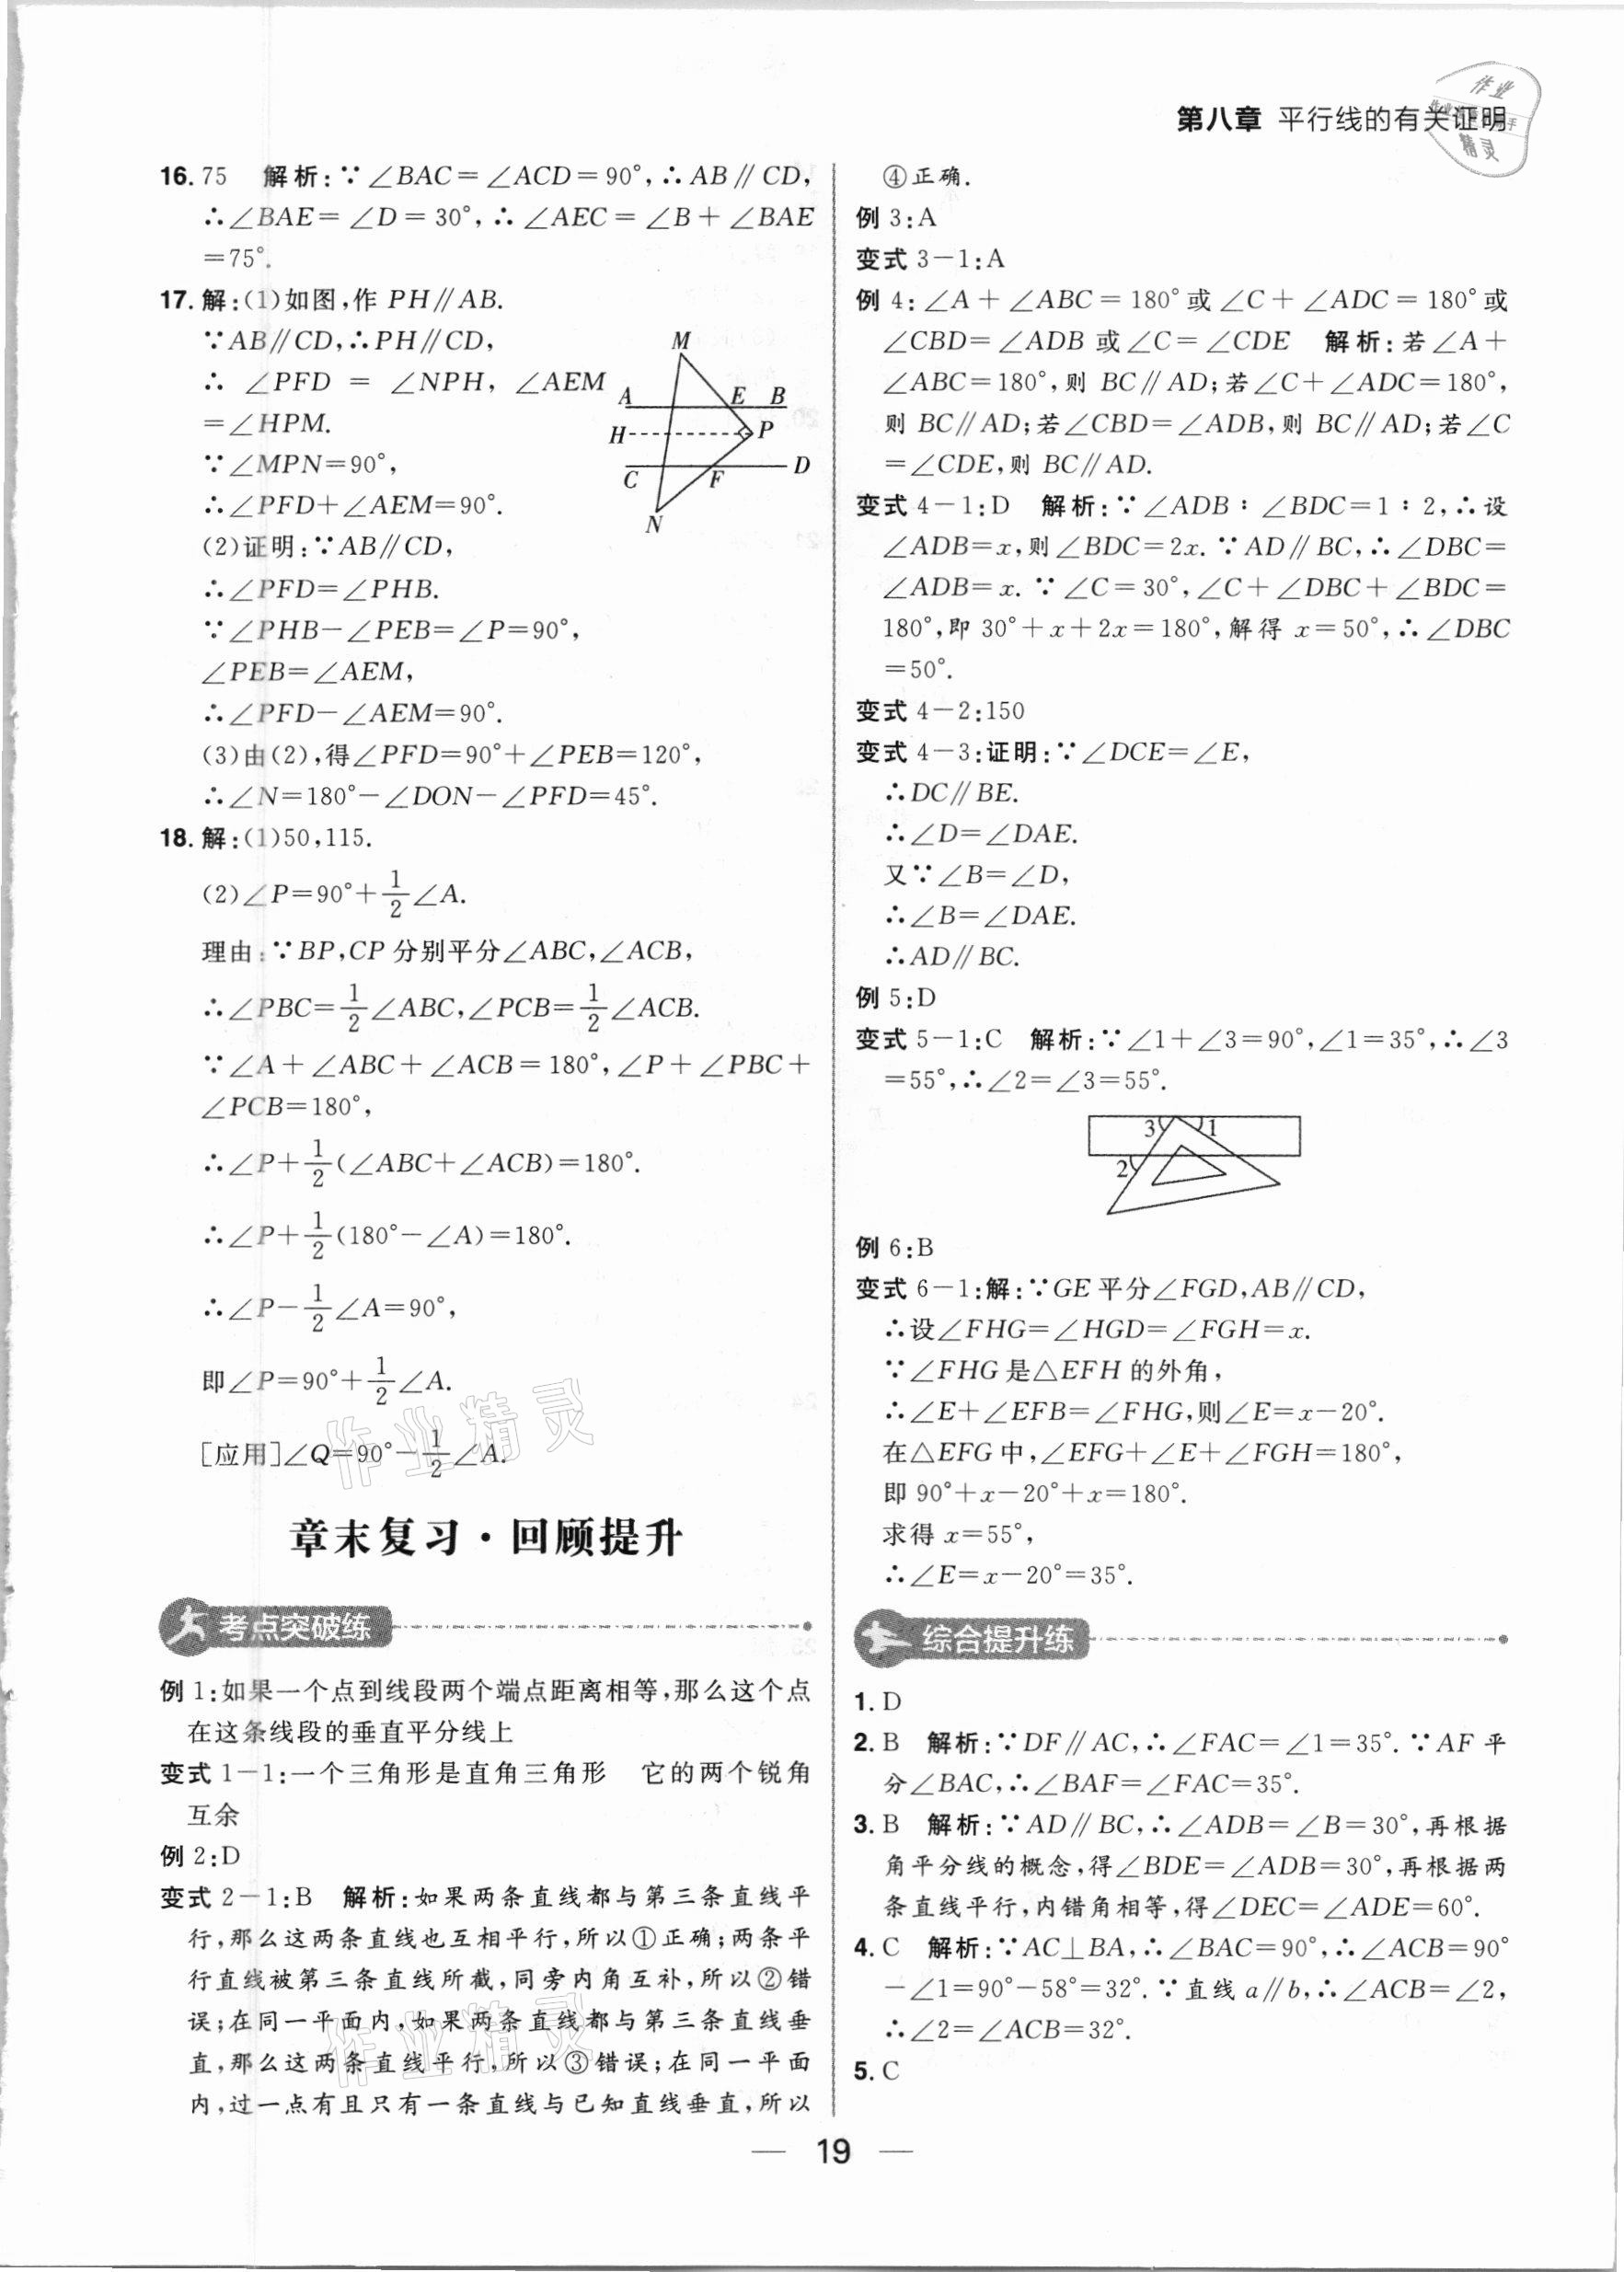 第八章 平行线的有关证明
作业
精灵
16. 75 解析:∵∠BAC=∠ACD=90°,∴AB∥CD,
∴∠BAE=∠D=30°,∴∠AEC=∠B+∠BAE
=75°.
17. 解:(1)如图,作 PH∥AB.
∵AB∥CD,∴PH∥CD,
∴∠PFD=∠NPH,∠AEM
=∠HPM.
∵∠MPN=90°,
∴∠PFD+∠AEM=90°.
(2)证明:∵AB∥CD,
∴∠PFD=∠PHB.
∵∠PHB-∠PEB=∠P=90°,
∠PEB=∠AEM,
∴∠PFD-∠AEM=90°.
(3)由(2),得∠PFD=90°+∠PEB=120°,
∴∠N=180°-∠DON-∠PFD=45°.
M
A E B
H P
C F D
N
18. 解:(1)50,115.
(2)∠P=90°+1/2∠A.
理由:∵BP,CP分别平分∠ABC,∠ACB,
∴∠PBC=1/2∠ABC,∠PCB=1/2∠ACB.
∵∠A+∠ABC+∠ACB=180°,∠P+∠PBC+
∠PCB=180°,
∴∠P+1/2(∠ABC+∠ACB)=180°.
∴∠P+1/2(180°-∠A)=180°.
∴∠P-1/2∠A=90°,
即∠P=90°+1/2∠A.
[应用]∠Q=90°-1/2∠A.
作业精灵
章末复习·回顾提升
考点突破练
例1:如果一个点到线段两个端点距离相等,那么这个点
在这条线段的垂直平分线上
变式1-1:一个三角形是直角三角形 它的两个锐角
互余
例2:D
变式2-1:B 解析:如果两条直线都与第三条直线平
行,那么这两条直线也互相平行,所以①正确;两条平
行直线被第三条直线所截,同旁内角互补,所以②错
误;在同一平面内,如果两条直线都与第三条直线垂
直,那么这两条直线平行,所以③错误;在同一平面
内,过一点有且只有一条直线与已知直线垂直,所以
作业精灵
④正确.
例3:A
变式3-1:A
例4:∠A+∠ABC=180°或∠C+∠ADC=180°或
∠CBD=∠ADB 或∠C=∠CDE 解析:若∠A+
∠ABC=180°,则 BC∥AD;若∠C+∠ADC=180°,
则 BC∥AD;若∠CBD=∠ADB,则 BC∥AD;若∠C
=∠CDE,则 BC∥AD.
变式4-1:D 解析:∵∠ADB∶∠BDC=1∶2,∴设
∠ADB=x,则∠BDC=2x.∵AD∥BC,∴∠DBC=
∠ADB=x.∵∠C=30°,∠C+∠DBC+∠BDC=
180°,即 30°+x+2x=180°,解得 x=50°,∴∠DBC
=50°.
变式4-2:150
变式4-3:证明:∵∠DCE=∠E,
∴DC∥BE.
∴∠D=∠DAE.
又∵∠B=∠D,
∴∠B=∠DAE.
∴AD∥BC.
例5:D
变式5-1:C 解析:∵∠1+∠3=90°,∠1=35°,∴∠3
=55°,∴∠2=∠3=55°.
3 1
2
例6:B
变式6-1:解:∵GE平分∠FGD,AB∥CD,
∴设∠FHG=∠HGD=∠FGH=x.
∵∠FHG是△EFH的外角,
∴∠E+∠EFB=∠FHG,则∠E=x-20°.
在△EFG中,∠EFG+∠E+∠FGH=180°,
即 90°+x-20°+x=180°.
求得 x=55°,
∴∠E=x-20°=35°.
综合提升练
1. D
2. B 解析:∵DF∥AC,∴∠FAC=∠1=35°.∵AF平
分∠BAC,∴∠BAF=∠FAC=35°.
3. B 解析:∵AD∥BC,∴∠ADB=∠B=30°,再根据
角平分线的概念,得∠BDE=∠ADB=30°,再根据两
条直线平行,内错角相等,得∠DEC=∠ADE=60°.
4. C 解析:∵AC⊥BA,∴∠BAC=90°,∴∠ACB=90°
-∠1=90°-58°=32°.∵直线a∥b,∴∠ACB=∠2,
∴∠2=∠ACB=32°.
5. C
— 19 —